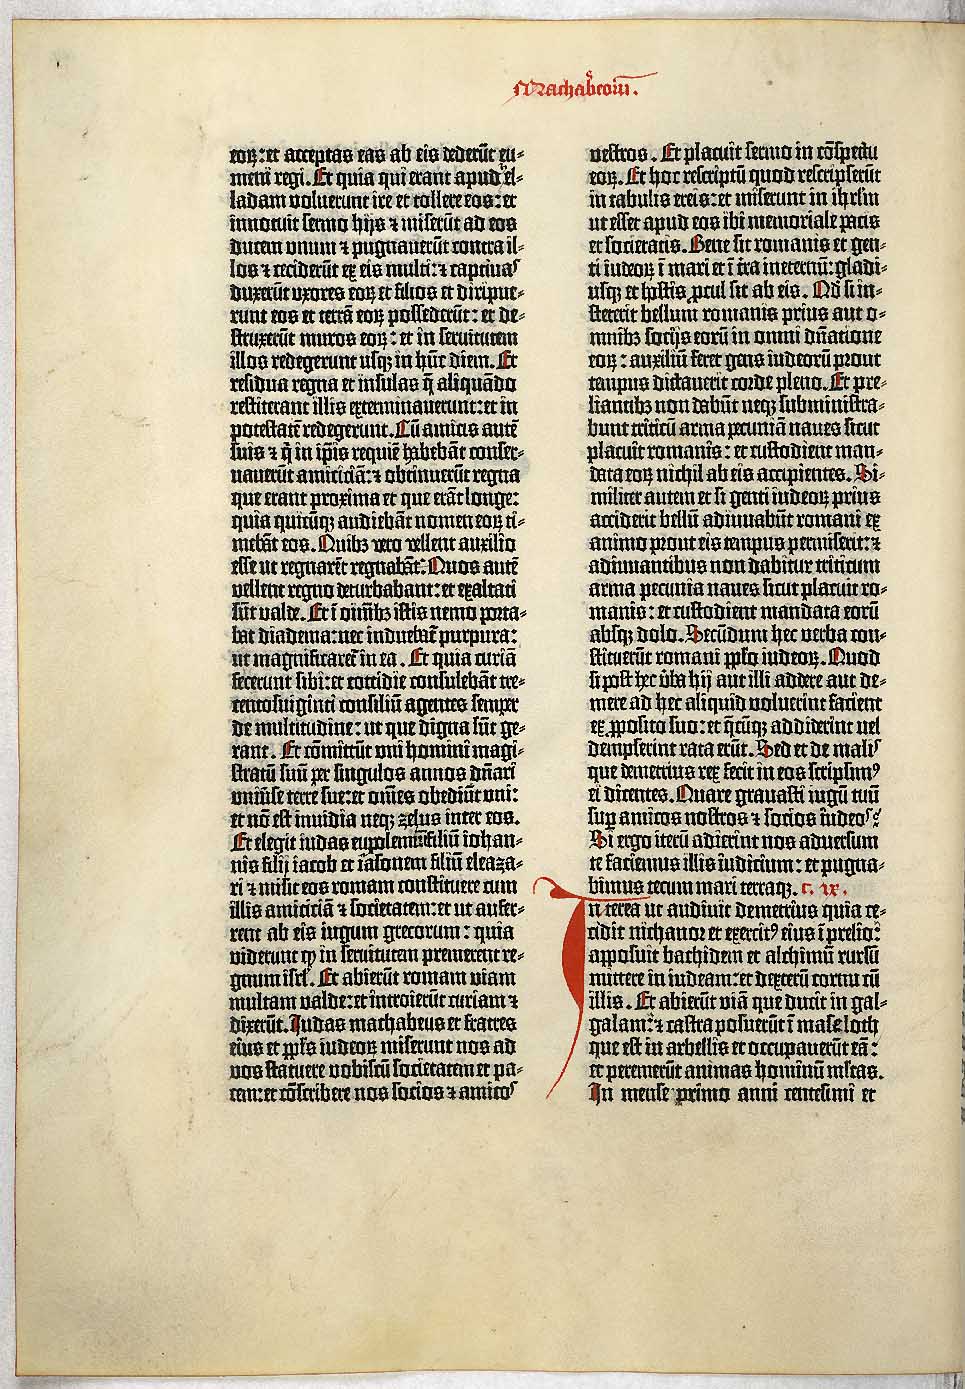 Machabeorū.
eoꝝ: et acceptas eas ab eis dederūt eu-
meni regi. Et quia qui erant apud el-
ladam voluerunt ire et tollere eos: et
innotuit sermo hijs ⁊ miserūt ad eos
ducem vnum ⁊ pugnauerūt contra il-
los ⁊ ceciderūt ex eis multi: ⁊ captiuas
duxerūt vxores eoꝝ et filios et diripue-
runt eos et terrā eoꝝ possederūt: et de-
struxerūt muros eoꝝ: et in seruitutem
illos redegerunt usqꝫ in hūc diem. Et
residua regna et insulas q̄ aliquādo
restiterant illis exterminauerunt: et in
potestatē redegerunt. Cū amicis autē
suis ⁊ q̄ in ip̄is requiē habebāt conser-
uauerūt amiciciā: ⁊ obtinuerūt regna
que erant proxima et que erāt longe:
quia quicūqꝫ audiebāt nomen eoꝝ ti-
mebāt eos. Quibꝫ vero vellent auxilio
esse ut regnarēt regnabāt: Quos autē
vellent regno deturbabant: et exaltati
sūt valde. Et ī oīnibꝫ istis nemo porta-
bat diadema: nec induebat᷑ purpura:
ut magnificaret᷑ in ea. Et quia curiā
fecerunt sibi: et cottidie consulebāt tre-
centosuiginti consiliū agentes semper
de multitudine: ut que digna sūt ge-
rant. Et cōmittūt vni homini magi-
stratū suū per singulos annos dn̄ari
vniūse terre sue: et om̄es obediūt vni:
et nō est inuidia neqꝫ zelus inter eos.
Et elegit iudas eupolemū filiū iohan-
nis filij iacob et iasonem filiū eleaza-
ri ⁊ misit eos romam constituere cum
illis amiciciā ⁊ societatem: et ut aufer-
rent ab eis iugum grecorum: quia
viderunt ꝙ in seruitutem premerent re-
gnum isrl̄. Et abierūt romam viam
multam valde: et introierūt curiam ⁊
dixerūt. Iudas machabeus et fratres
eius et ppl̄s iudeoꝝ miserunt nos ad
vos statuere vobiscū societatem et pa-
cem: et cōscribere nos socios ⁊ amicos
vestros. Et placuit sermo in cōspectu
eoꝝ. Et hoc rescriptū quod rescripserūt
in tabulis ereis: et miserunt in ihrl̄m
ut esset apud eos ibi memoriale pacis
et societatis. Bene sit romanis et gen-
ti iudeoꝝ ī mari et ī t̄ra ineternū: gladi-
usqꝫ et hostis ꝓcul sit ab eis. Qd̄ si in-
steterit bellum romanis prius aut o-
mnibꝫ socijs eorū in omni dn̄atione
eoꝝ: auxiliū feret gens iudeorū prout
tempus dictauerit corde pleno. Et pre-
liantibꝫ non dabūt neqꝫ subministra-
bunt triticū arma pecuniā naues sicut
placuit romanis: et custodient man-
data eoꝝ nichil ab eis accipientes. Si-
militer autem et si genti iudeoꝝ prius
acciderit bellū adiuuabūt romani ex
animo prout eis tempus permiserit: ⁊
adiuuantibus non dabitur triticum
arma pecunia naues sicut placuit ro-
manis: et custodient mandata eorū
absqꝫ dolo. Secūdum hec verba con-
stituerūt romani pplō iudeoꝝ. Quod
si post hec ūba hij aut illi addere aut de-
mere ad hec aliquid voluerint facient
ex ꝓposito suo: et q̄cūqꝫ addiderint uel
dempserint rata erūt. Sed et de malis
que demetrius rex fecit in eos scripsimꝰ
ei dicentes. Quare grauasti iugū tuū
sup̄ amicos nostros ⁊ socios iudeos?
Si ergo iterū adierint nos aduersum
te faciemus illis iudicium: et pugna-
bimus tecum mari terraqꝫ. c. ix.
Interea ut audiuit demetrius quia ce-
cidit nichanor et exercitꝰ eius ī prelio:
apposuit bachidem et alchimū rursū
mittere in iudeam: et dexterū cornu cū
illis. Et abierūt viā que ducit in gal-
galam: ⁊ castra posuerūt ī maseloth
que est in arbellis et occupauerūt eā:
et peremerūt animas hominū ml̄tas.
In mense primo anni centesimi et